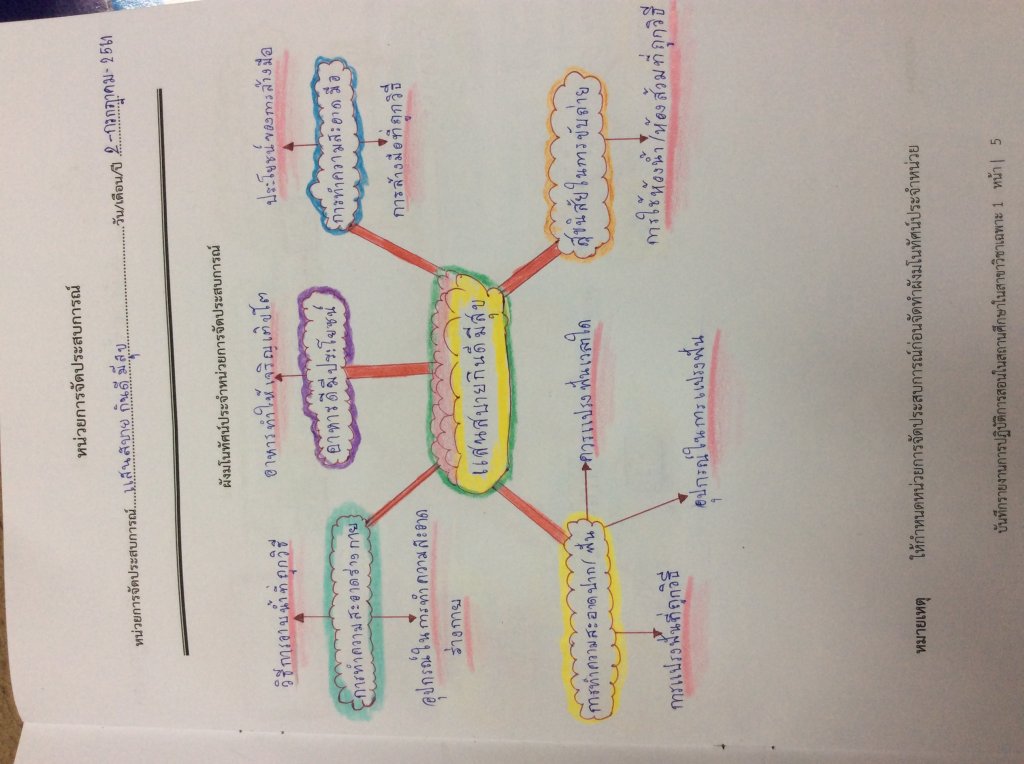 หน่วยการจัดประสบการณ์
หน่วยการจัดประสบการณ์......แสนสบาย กินดี มีสุข......วัน/เดือน/ปี 2-กรกฎาคม-2561
ผังมโนทัศน์ประจำหน่วยการจัดประสบการณ์
วิธีการอาบน้ำที่ถูกวิธี
อาหารทำให้เจริญเติบโต
ประโยชน์ของการล้างมือ
การทำความสะอาดร่างกาย
อาหารดีมีประโยชน์
การทำความสะอาดมือ
อุปกรณ์ในการทำความสะอาด
ร่างกาย
การล้างมือที่ถูกวิธี
แสนสบายกินดีมีสุข
การทำความสะอาดปาก/ฟัน
ควรแปรงฟันเวลาใด
สุขนิสัยในการขับถ่าย
การแปรงฟันที่ถูกวิธี
อุปกรณ์ในการแปรงฟัน
การใช้ห้องน้ำ/ห้องส้วมที่ถูกวิธี
หมายเหตุ ให้กำหนดหน่วยการจัดประสบการณ์ก่อนจัดทำผังมโนทัศน์ประจำหน่วย
บันทึกรายงานการปฏิบัติการสอนในสถานศึกษาในสาขาวิชาเฉพาะ 1 หน้า | 5